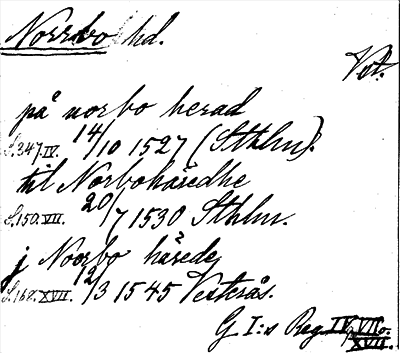 Norrbo hd.
Vst.
på norbo herad
S.347.IV. 14/10 1527 (Sthlm).
til Norbohäredhe
S.150.VII. 20/7 1530 Sthlm.
j Noorbo härede
S.168.XVII. 12/3 1545 Vesterås.
G I:s Reg. IV, VII o. XVII.